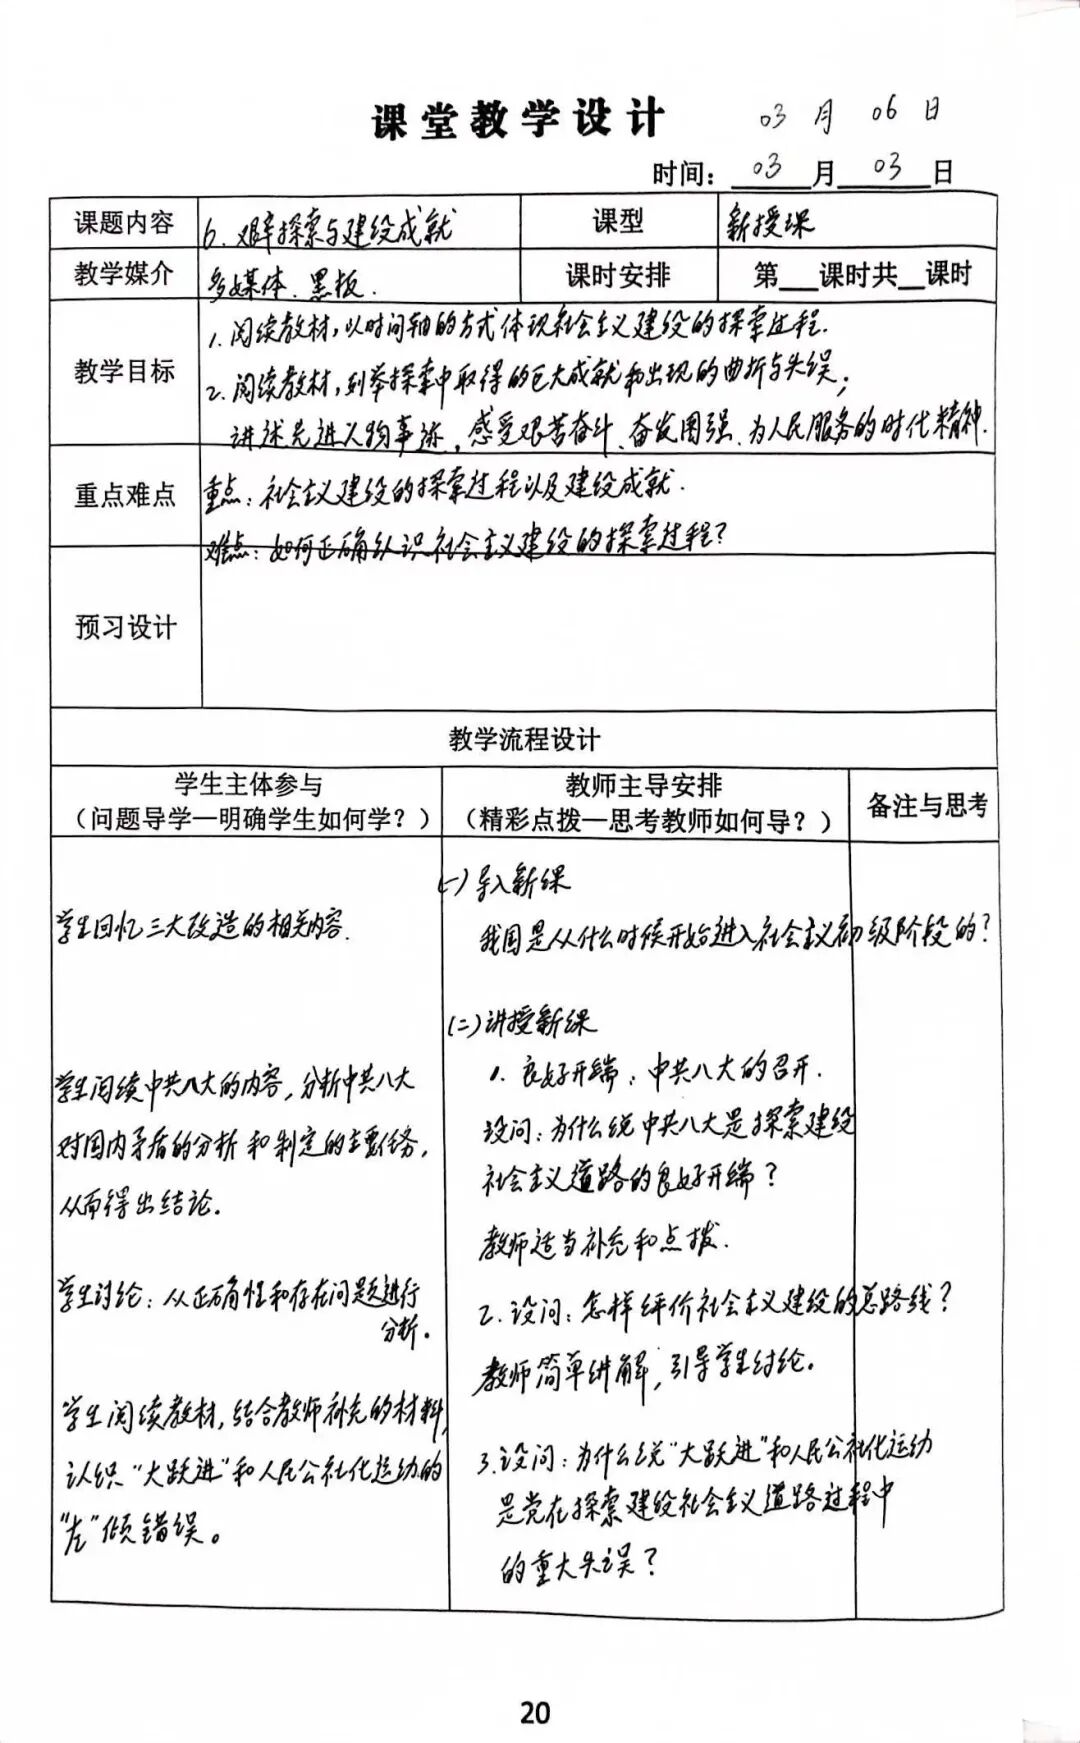 课堂教学设计
03月06日
时间：03月03日
课题内容 6.艰辛探索与建设成就 课型 新授课
教学媒介 多媒体、黑板. 课时安排 第___课时共__课时
教学目标
1.阅读教材，以时间轴的方式体现社会主义建设的探索过程.
2.阅读教材，列举探索中取得的巨大成就和出现的曲折与失误；
讲述先进人物事迹，感受艰苦奋斗、奋发图强、为人民服务的时代精神.
重点难点
重点：社会主义建设的探索过程以及建设成就.
难点：如何正确认识社会主义建设的探索过程？
预习设计
教学流程设计
学生主体参与
（问题导学—明确学生如何学？）
教师主导安排
（精彩点拨—思考教师如何导？）
备注与思考
学生回忆三大改造的相关内容.
学生阅读中共八大的内容，分析中共八大
对国内矛盾的分析和制定的主要任务，
从而得出结论.
学生讨论：从正确性和存在问题进行
分析。
学生阅读教材，结合教师补充的材料，
认识“大跃进”和人民公社化运动的
“左”倾错误。
(一)导入新课
我国是从什么时候开始进入社会主义初级阶段的？
(二)讲授新课
1.良好开端：中共八大的召开.
设问：为什么说中共八大是探索建设
社会主义道路的良好开端？
教师适当补充和点拨.
2.设问：怎样评价社会主义建设的总路线？
教师简单讲解，引导学生讨论。
3.设问：为什么说“大跃进”和人民公社化运动
是党在探索建设社会主义道路过程中
的重大失误？
20